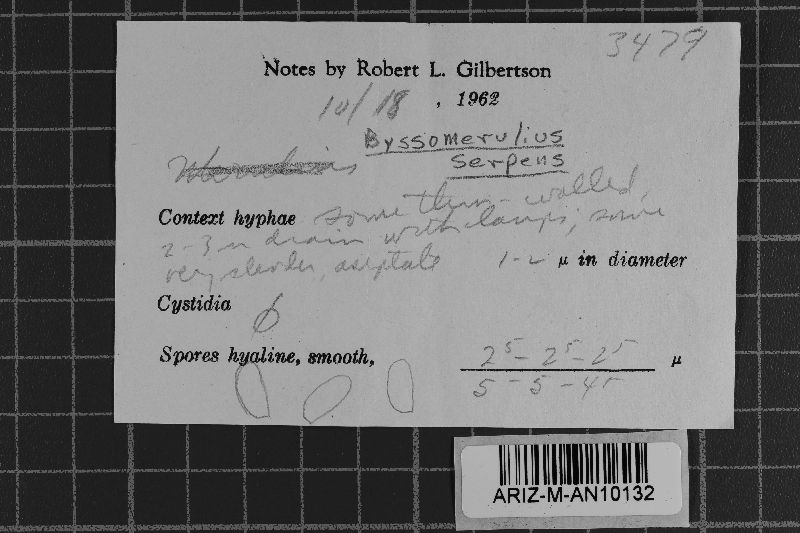 3479
Notes by Robert L. Gilbertson
10/18 , 1962
Byssomerulius
serpens
Context hyphae some thin-walled,
2-3 µ diam with clamps; some
very slender, aseptate 1-2 µ in diameter
Cystidia
Spores hyaline, smooth, 2⁵- 2⁵- 2⁵ µ
5 - 5 - 4⁵
ARIZ-M-AN10132